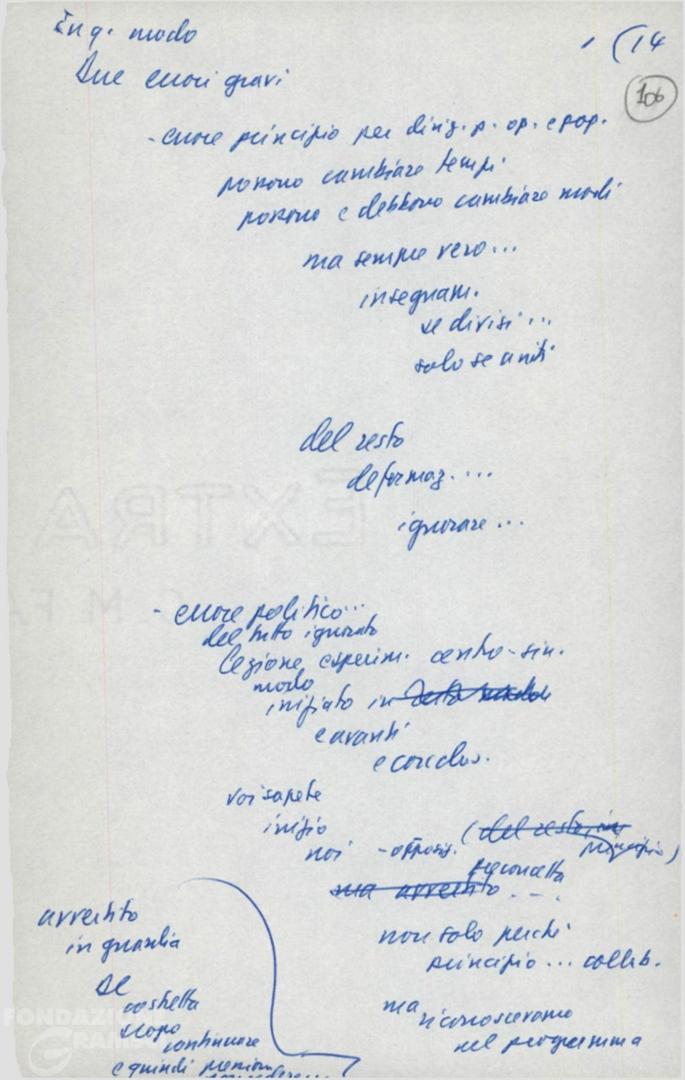 In q. modo
1 (14
106
Due errori gravi
- errore principio per dirig. p. op. e pop.
possono cambiare tempi
possono e debbono cambiare modi
ma sempre vero...
insegnam.
se divisi...
solo se uniti
del resto
deformaz....
ignorare...
- errore politico...
del tutto ignorato
lezione esperim. centro-sin.
modo
iniziato in
e avanti
e conclus.
voi sapete
inizio
noi - opposiz. (del resto, in principio)
preconcetta
ma avvertito ...
non solo perché
principio... collab.
ma
riconoscevamo
nel programma
avvertito
in guardia
se
scopo
continuare
e quindi
FONDAZIONE
GRAMSCI
EXTRA